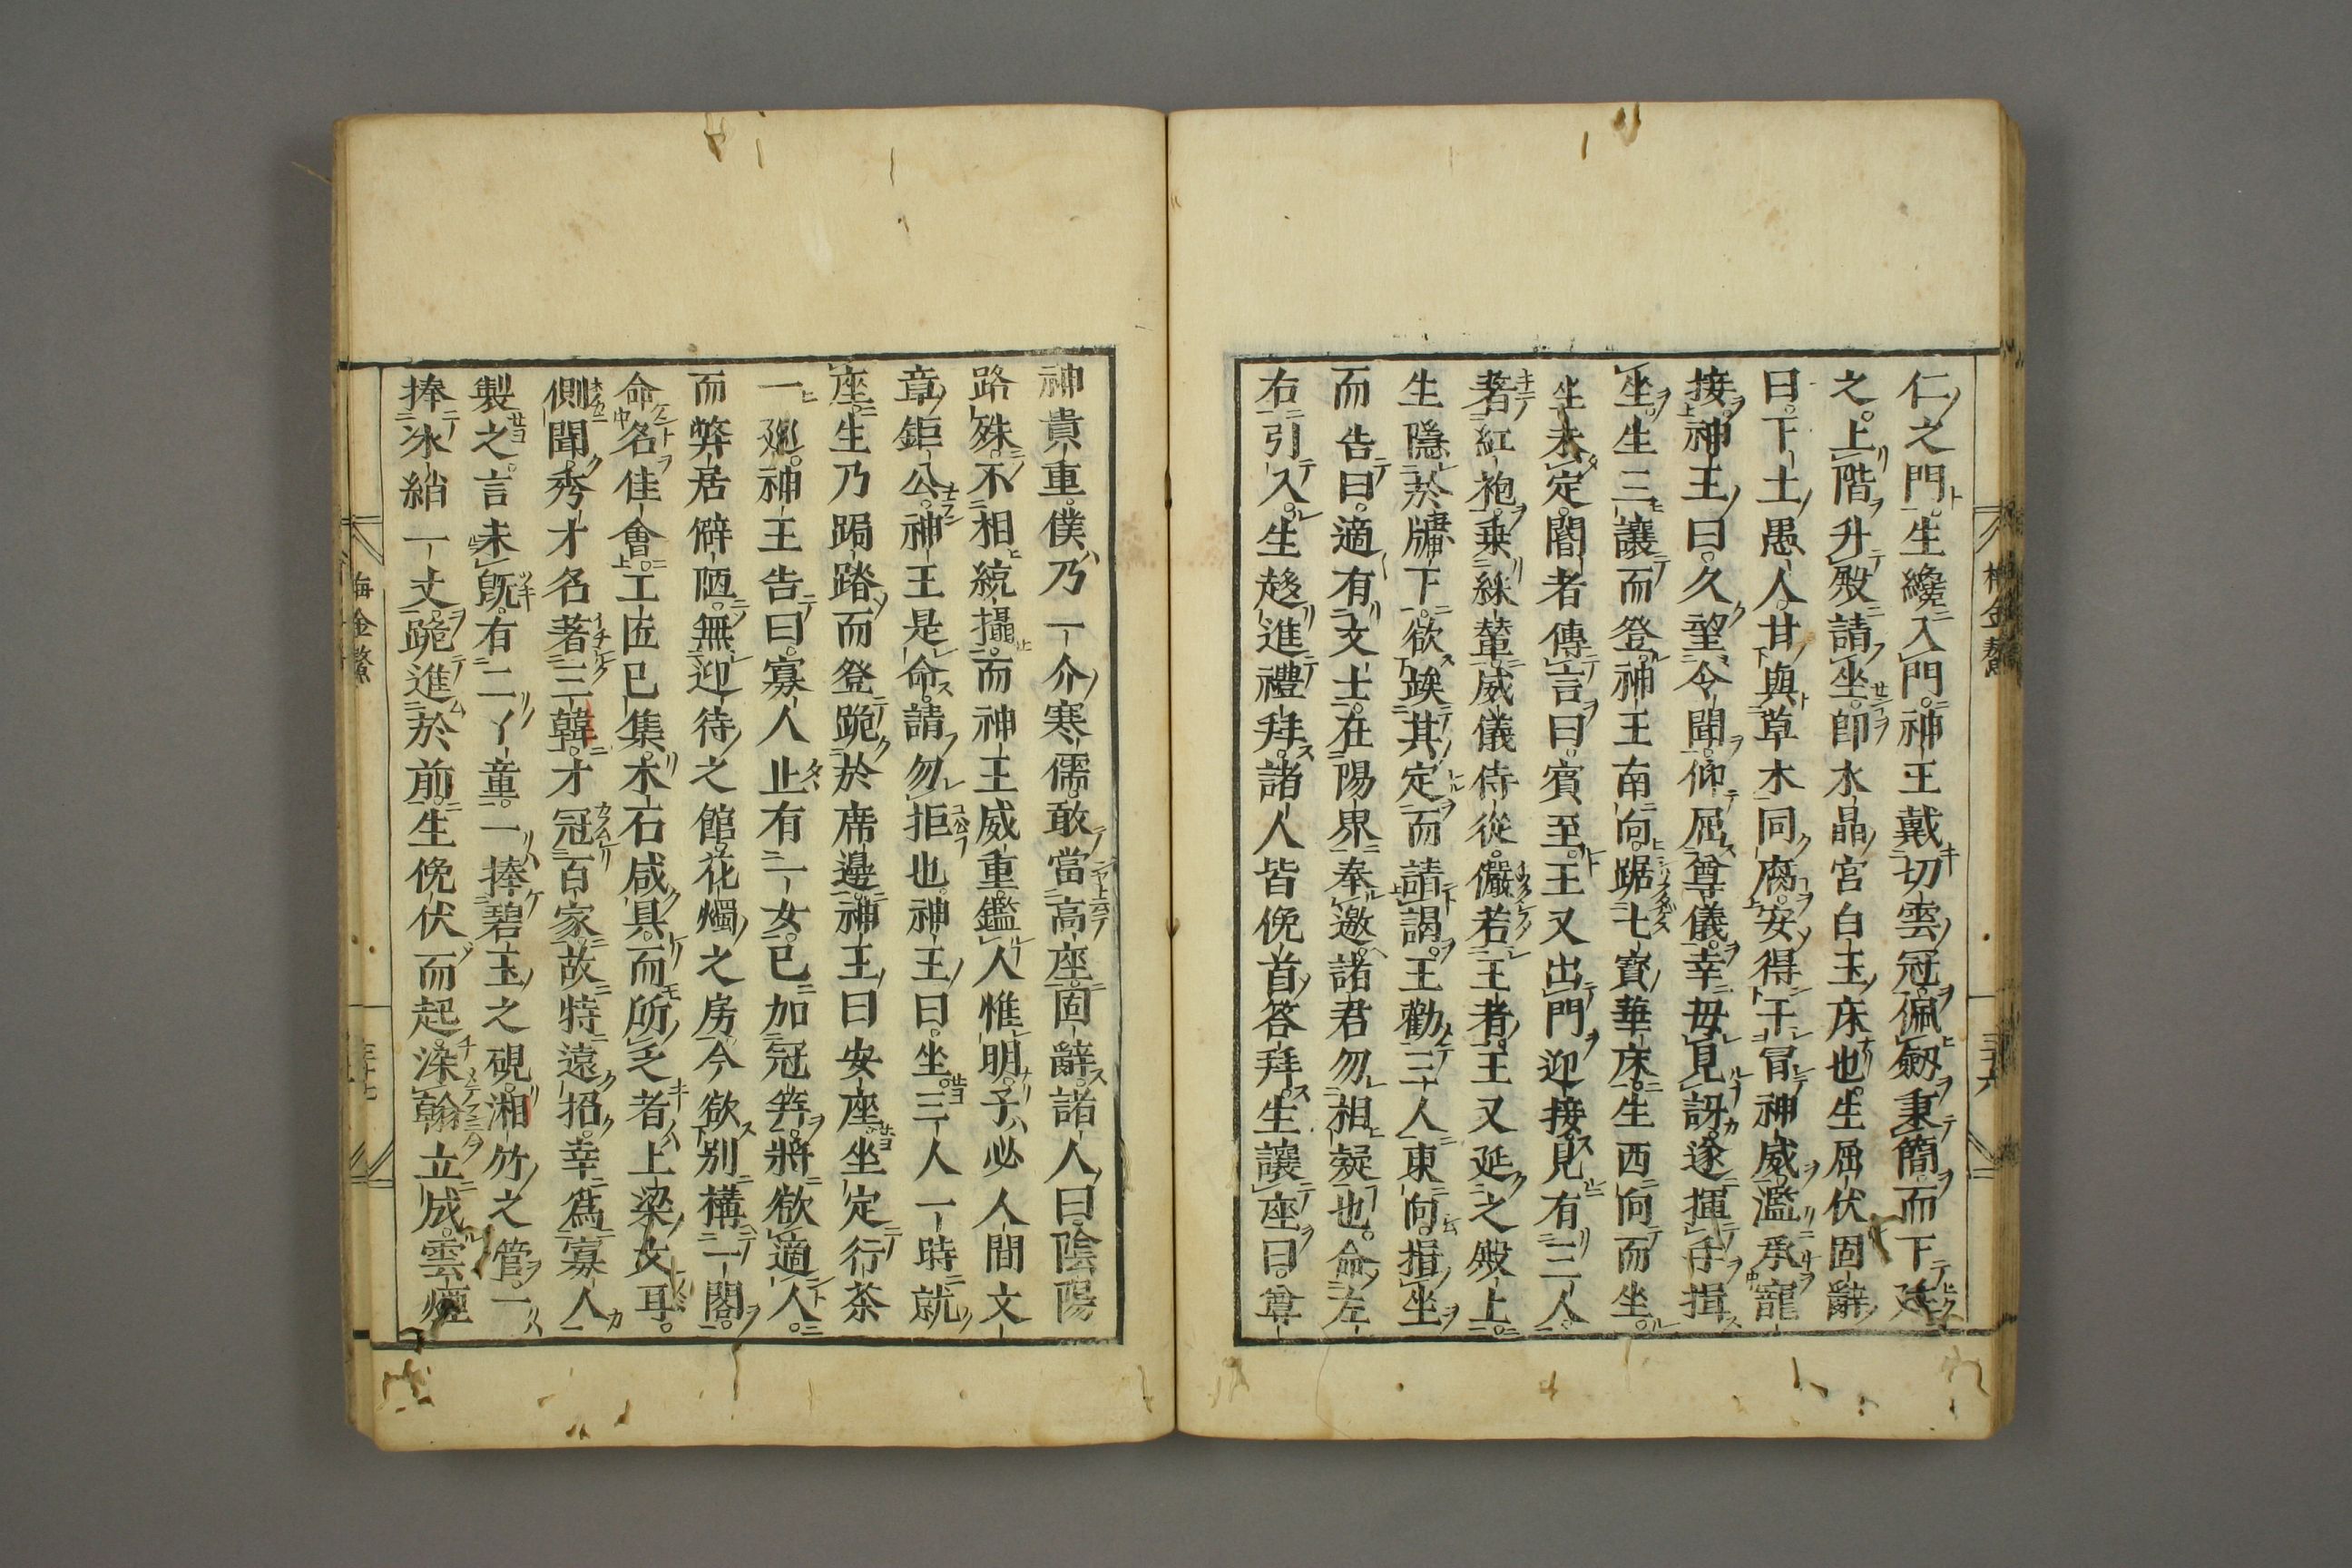 仁之門。生纔入門。神王戴切雲冠。佩劔秉簡。而下
之。上階升殿請坐。卽水晶宮白玉床也。生屈伏固辭
曰。下土愚人。甘與草木同腐。安得干冒神威。濫承寵
接。神王曰。久望令聞。仰屈尊儀。幸毋見訝。遂揮手揖
坐。生三讓而登。神王南向。踞七寶華床。生西向而坐。
坐未定。閽者傳言曰。賓至。王又出門迎接。見有三人。
著紅袍。乘綵輦。威儀侍從。儼若王者。王又延之殿上。
生隱於牖下。欲竢其定而請謁。王勸三人東向。揖坐
而告曰。適有文士。在陽界奉邀。諸君勿相疑也。命左
右引入。生趍進禮拜。諸人皆俛首答拜。生讓座曰。尊
神貴重。僕乃一介寒儒。敢當高座。固辭。諸人曰。陰陽
路殊。不相統攝。而神王威重。鑑人惟明。子必人間文
章鉅公。神王是命。請勿拒也。神王曰。坐。三人一時就
座。生乃跼蹐而登。跪於席邊。神王曰安座。坐定行茶
一廵。神王告曰。寡人止有一女。已加冠筓。將欲適人。
而弊居僻陋。無迎待之館。花燭之房。今欲別構一閣。
命名佳會。工匠已集。木石咸具。而所乏者上梁文耳。
側聞。秀才名著三韓。才冠百家。故特遠招。幸爲寡人
製之。言未旣。有二丫童。一捧碧玉之硯。湘竹之管。一
捧冰綃一丈。跪進於前。生俛伏而起。染翰立成。雲煙
梅金鰲
三十六
梅金鰲
三十七